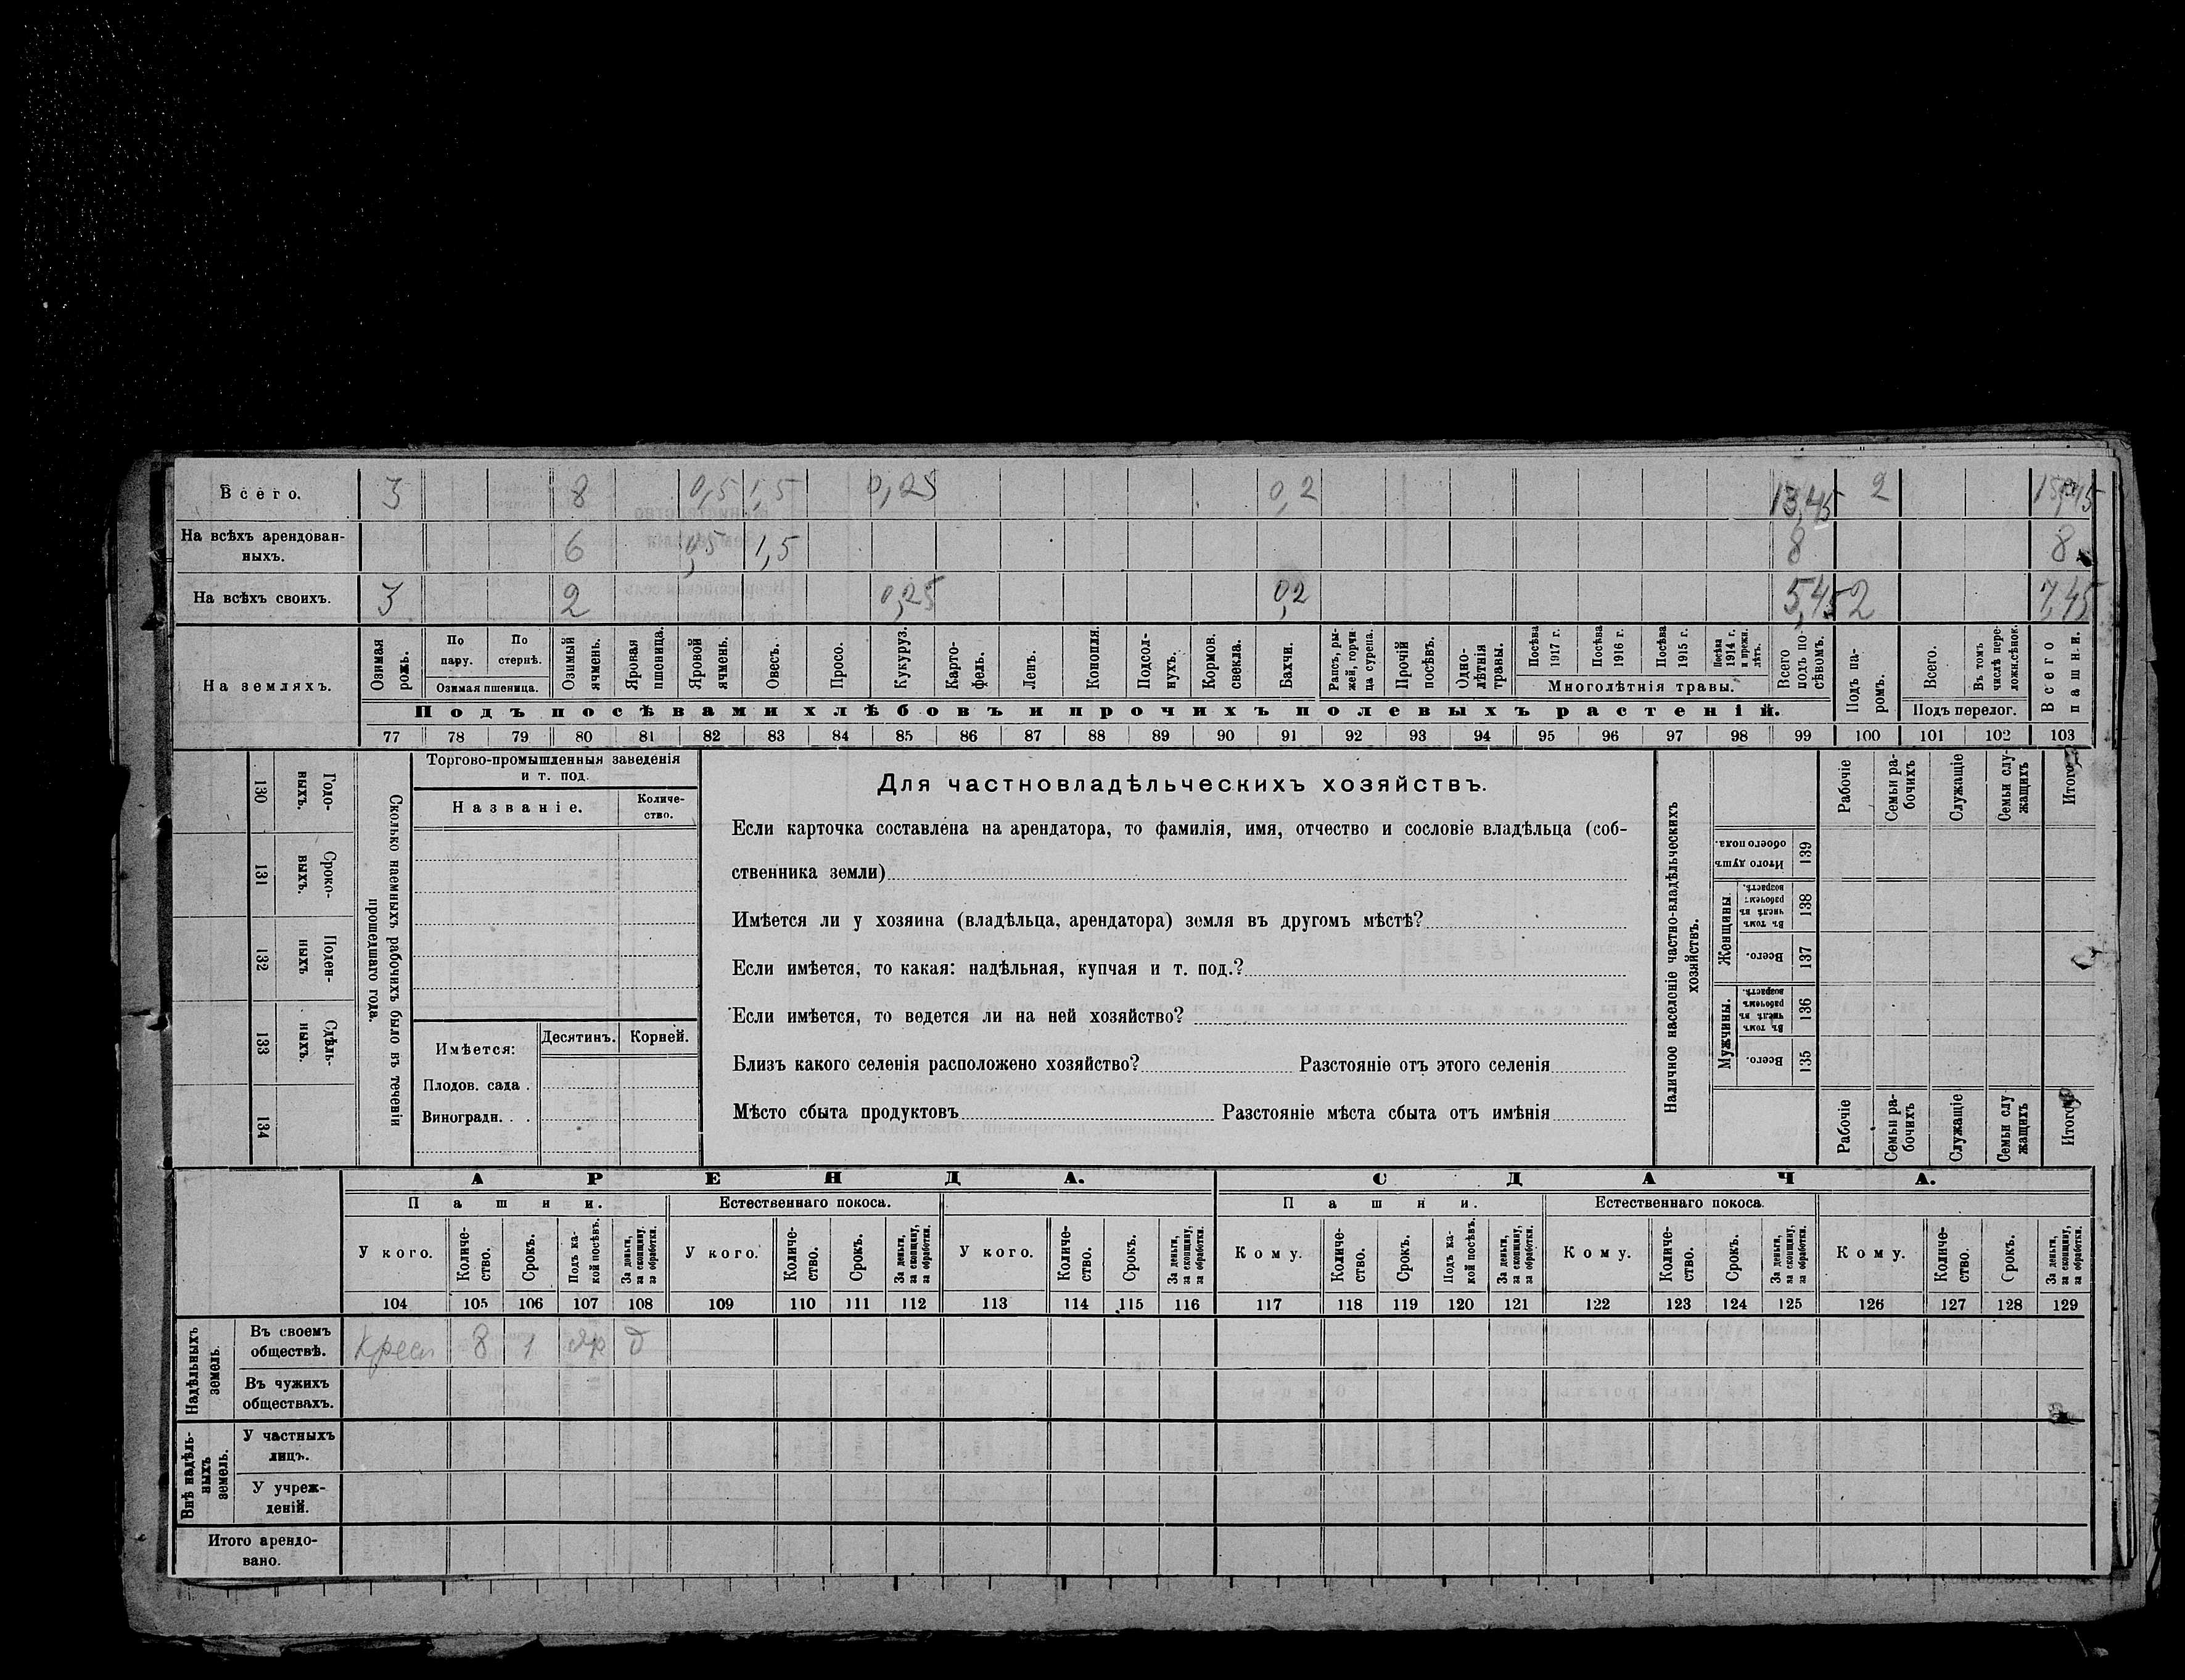 Всего. 3 8 0,5 1,5 0,25 0,2 13,45 2 15,45
На всѣхъ арендован-
ныхъ. 6 0,5 1,5 8 8
На всѣхъ своихъ. 3 2 0,25 0,2 5,45 2 7,45
На земляхъ.
Озимая рожь.
По пару.
По стернѣ.
Озимая пшеница.
Озимый ячмень.
Яровая пшеница.
Яровой ячмень.
Овесъ.
Просо.
Кукуруз.
Карто-
фель.
Ленъ.
Конопля.
Подсол-
нухъ.
Кормов. свекла.
Бахчи.
Рапсъ, ры-
жей, горчи-
ца сурепа.
Прочій посѣвъ.
Одно-
лѣтнія травы.
Посѣва 1917 г.
Посѣва 1916 г.
Посѣва 1915 г.
Посѣва 1914 г. и прежн. лѣтъ.
Многолѣтнія травы.
Всего подъ по-
сѣвомъ.
Подъ па-
ромъ.
Всего.
Въ томъ числѣ пере-
ложн. сѣнок.
Подъ перелог.
Всего пашни.
Подъ посѣвами хлѣбовъ и прочихъ полевыхъ растеній.
77 78 79 80 81 82 83 84 85 86 87 88 89 90 91 92 93 94 95 96 97 98 99 100 101 102 103
130 Годо-
ныхъ.
131 Сроко-
выхъ.
132 Поден-
ныхъ
133 Сдѣль-
ныхъ.
134
Сколько наемныхъ рабочихъ было въ теченіи
прошедшаго года.
Торгово-промышленныя заведенія
и т. под.
Названіе.
Количе-
ство.
Имѣется:
Десятинъ. Корней.
Плодов. сада .
Виноградн. . .
Для частновладѣльческихъ хозяйствъ.
Если карточка составлена на арендатора, то фамилія, имя, отчество и сословіе владѣльца (соб-
ственника земли)
Имѣется ли у хозяина (владѣльца, арендатора) земля въ другомъ мѣстѣ?
Если имѣется, то какая: надѣльная, купчая и т. под.?
Если имѣется, то ведется ли на ней хозяйство?
Близъ какого селенія расположено хозяйство? Разстояніе отъ этого селенія
Мѣсто сбыта продуктовъ Разстояніе мѣста сбыта отъ имѣнія
Наличное населеніе частно-владѣльческихъ
хозяйствъ.
Рабочіе
Семьи ра-
бочихъ
Служащіе
Семьи слу-
жащихъ
Итого
Итого душъ обоего пола. 139
Женщины.
Въ томъ числѣ въ рабочемъ возрастѣ. 138
Всего. 137
Мужчины.
Въ томъ числѣ въ рабочемъ возрастѣ. 136
Всего. 135
Рабочіе
Семьи ра-
бочихъ
Служащіе
Семьи слу-
жащихъ
Итого
АРЕНДА. СДАЧА.
Пашни. Естественнаго покоса. Пашни. Естественнаго покоса.
У кого.
Количе-
ство.
Срокъ.
Подъ ка-
кой посѣвъ.
За деньги, за скопщину, за обработки.
У кого.
Количе-
ство.
Срокъ.
За деньги, за скопщину, за обработки.
У кого.
Количе-
ство.
Срокъ.
За деньги, за скопщину, за обработки.
Кому.
Количе-
ство.
Срокъ.
Подъ ка-
кой посѣвъ.
За деньги, за скопщину, за обработки.
Кому.
Количе-
ство.
Срокъ.
За деньги, за скопщину, за обработки.
Кому.
Количе-
ство.
Срокъ.
За деньги, за скопщину, за обработки.
104 105 106 107 108 109 110 111 112 113 114 115 116 117 118 119 120 121 122 123 124 125 126 127 128 129
Надѣльныхъ земель.
Въ своемъ
обществѣ. Крест 8 1 яр д
Въ чужихъ
обществахъ.
Внѣ надѣль-
ныхъ земель.
У частныхъ
лицъ.
У учреж-
деній.
Итого арендо-
вано.